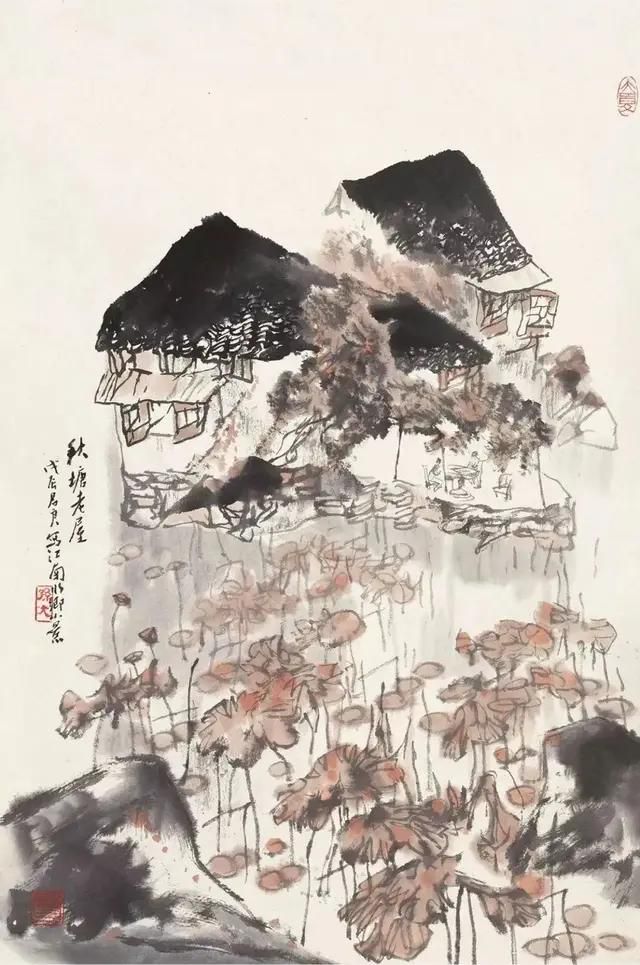 秋塘老屋
戊辰月寫江南水鄉小景